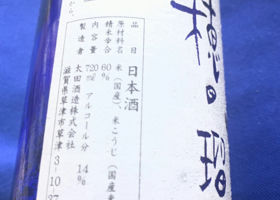 から。
穂の瑠
品目 日本酒
原材料名 米(国産)、米こうじ(国産米
精米歩合 60%
内容量 720ml アルコール分 14%
製造者 太田酒造株式会社
滋賀県草津市草津3-10-37